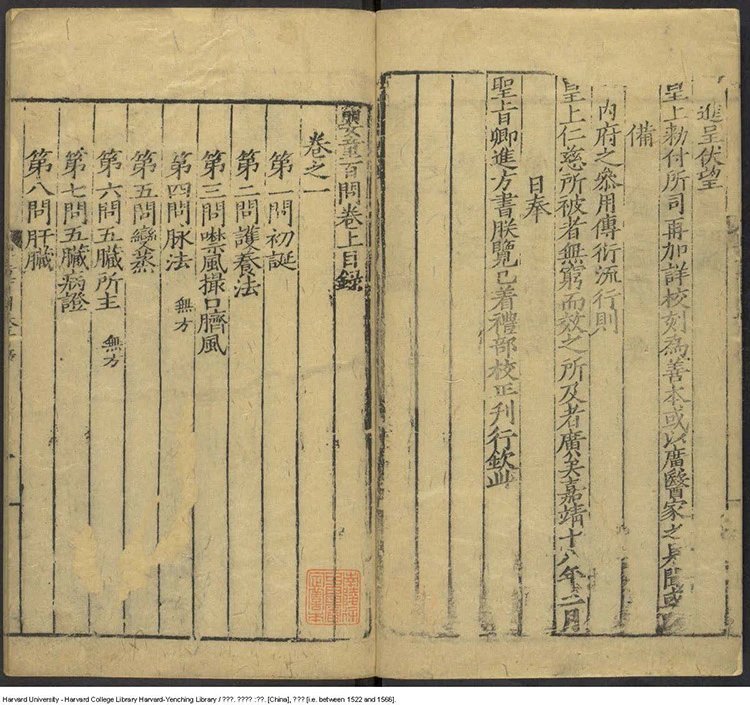 進呈伏望
皇上勑付所司再加詳校刻為善本或以廣醫家之見聞或以
備
內府之叅用傳術流行則
皇上仁慈所被者無窮而效之所及者廣矣嘉靖十八年二月
日奉
聖旨卿進方書朕覽已着禮部校正刊行欽此
嬰童百問卷上目錄
卷之一
第一問初誕
第二問護養法
第三問噤風撮口臍風
第四問脉法 無方
第五問變蒸
第六問五臟所主 無方
第七問五臟病證
第八問肝臟
Harvard University - Harvard College Library Harvard-Yenching Library / ???. ???? :??. [China], ??? [i.e. between 1522 and 1566].